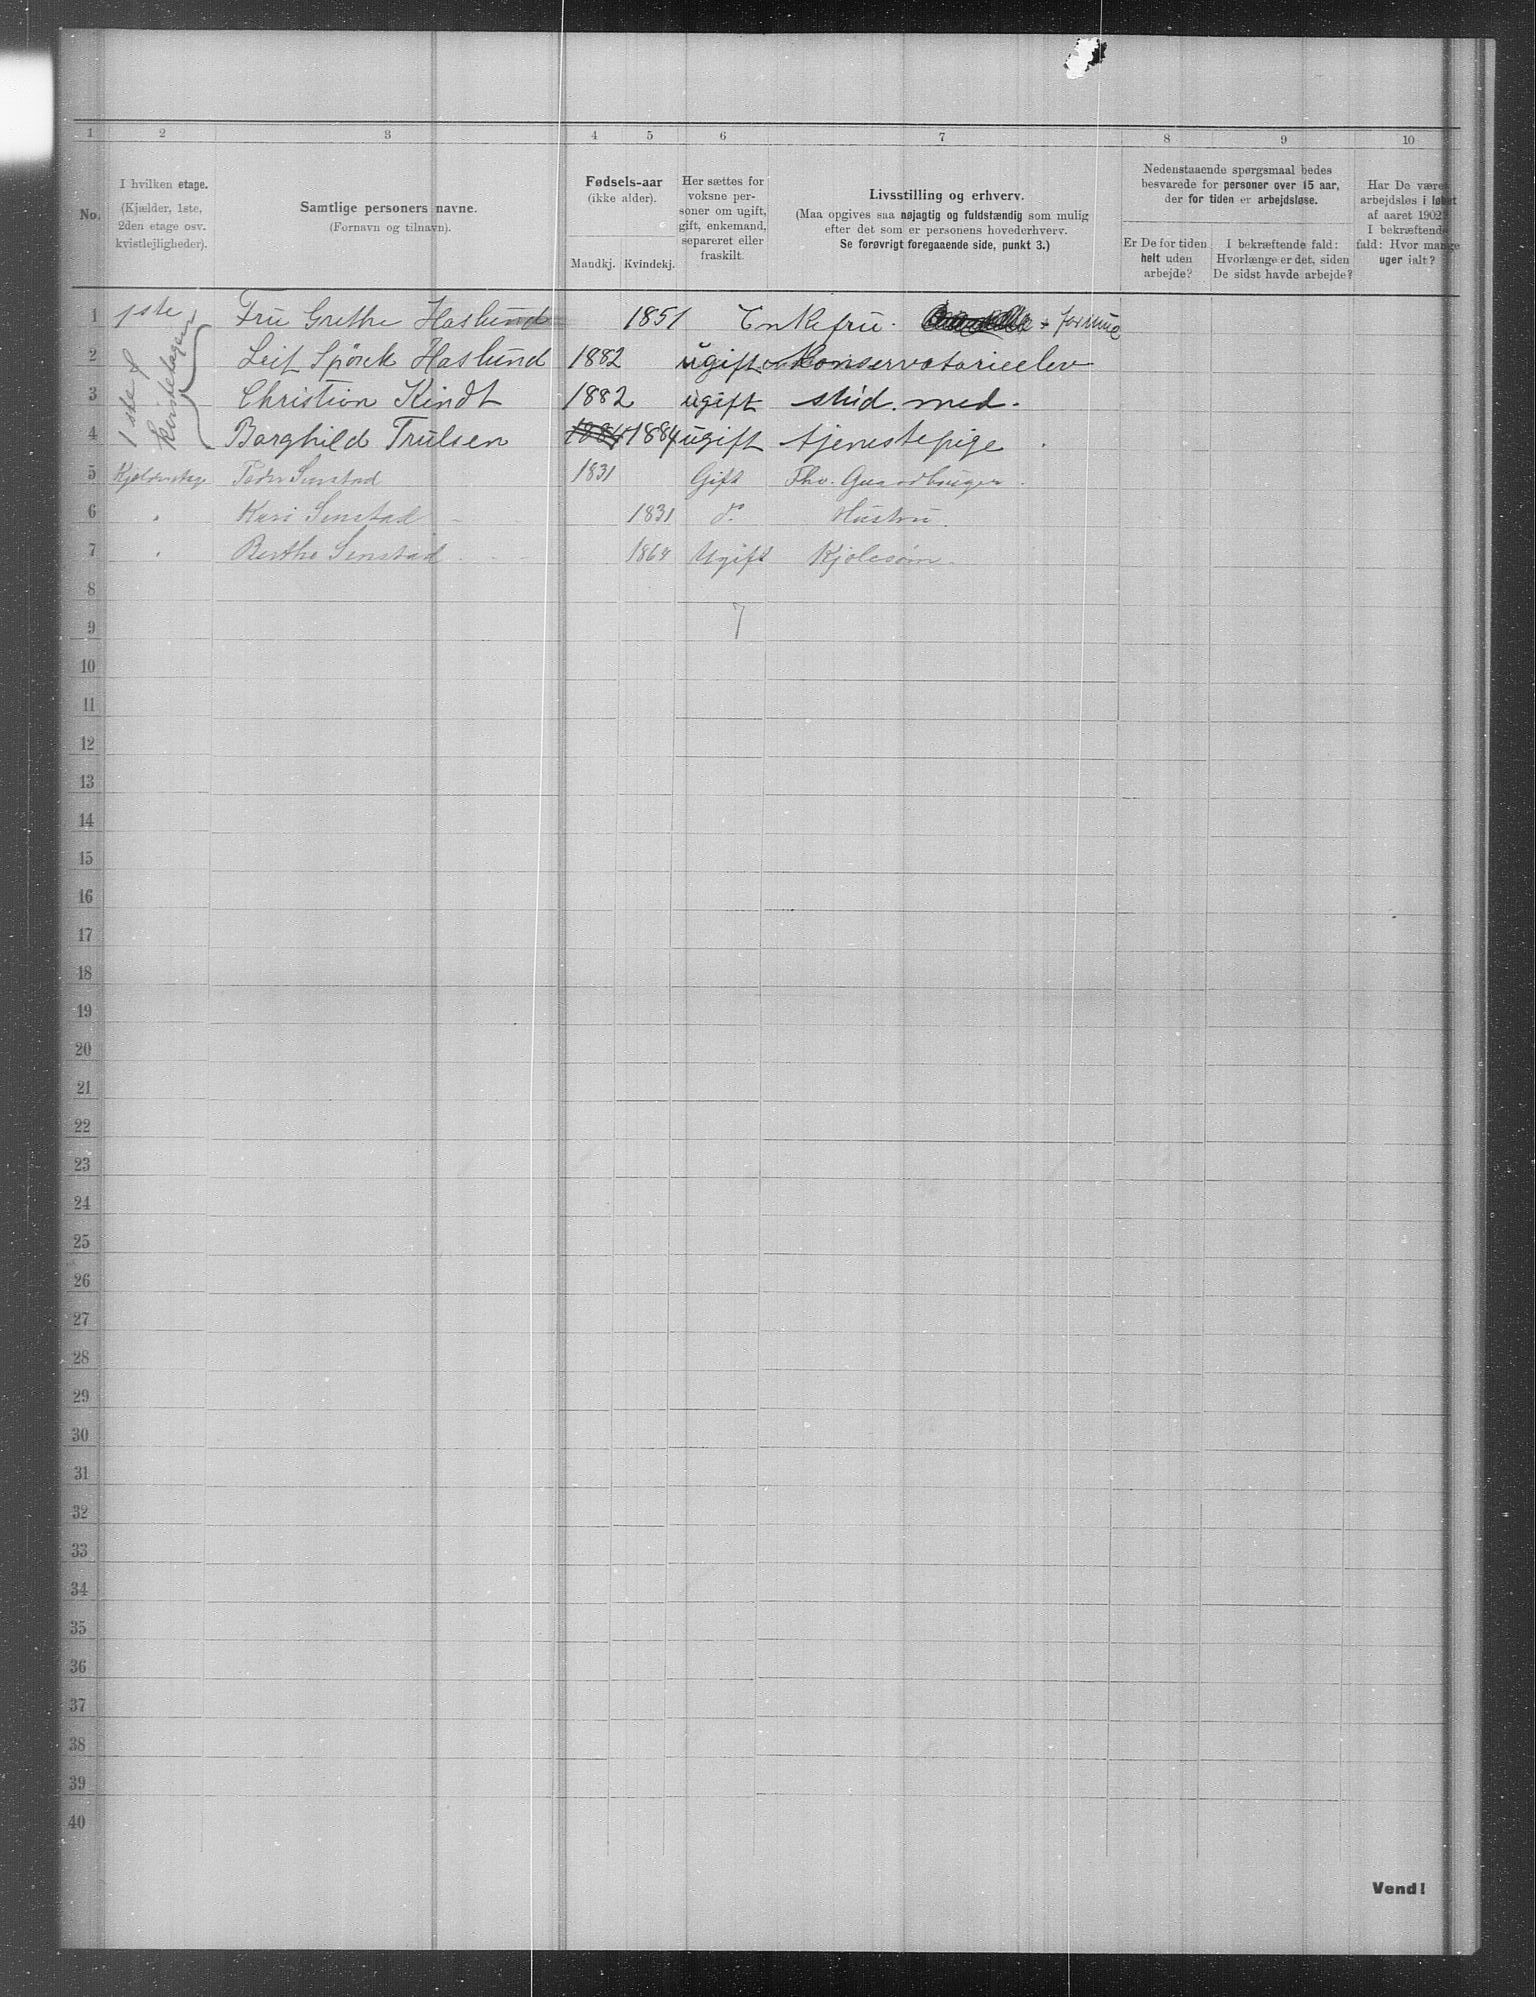 1 2 3 4 5 6 7 8 9 10
No.
I hvilken etage.
(Kjælder, 1ste,
2den etage osv.
kvistlejligheder).
Samtlige personers navne.
(Fornavn og tilnavn).
Fødsels-aar
(ikke alder).
Mandkj. Kvindekj.
Her sættes for
voksne per-
soner om ugift,
gift, enkemand,
separeret eller
fraskilt.
Livsstilling og erhverv.
(Maa opgives saa nøjagtig og fuldstændig som mulig
efter det som er personens hovederhverv.
Se forøvrigt foregaaende side, punkt 3.)
Nedenstaaende spørgsmaal bedes
besvarede for personer over 15 aar,
der for tiden er arbejdsløse.
Er De for tiden
helt uden
arbejde?
I bekræftende fald:
Hvorlænge er det, siden
De sidst havde arbejde?
Har De været
arbejdsløs i løbet
af aaret 1902?
I bekræftende
fald: Hvor mange
uger ialt?
1 1ste Fru Grethe Haslund 1851 Enkefru. formue
2 Leif Spörck Haslund 1882 ugift Konservatorieelev
3 Christian Kindt 1882 ugift stud. med.
4 Borghild Trulsen 1884 1884 ugift tjenestepige
5 Kjelderetage Peder Senstad 1831 Gift Fhv. Gaardbruger
6 " Kari Senstad 1831 do Hustru.
7 " Berthe Senstad 1864 Ugift Kjolesøm.
1ste
8
7
9
10
11
12
13
14
15
16
17
18
19
20
21
22
23
24
25
26
27
28
29
30
31
32
33
34
35
36
37
38
39
40
Vend!